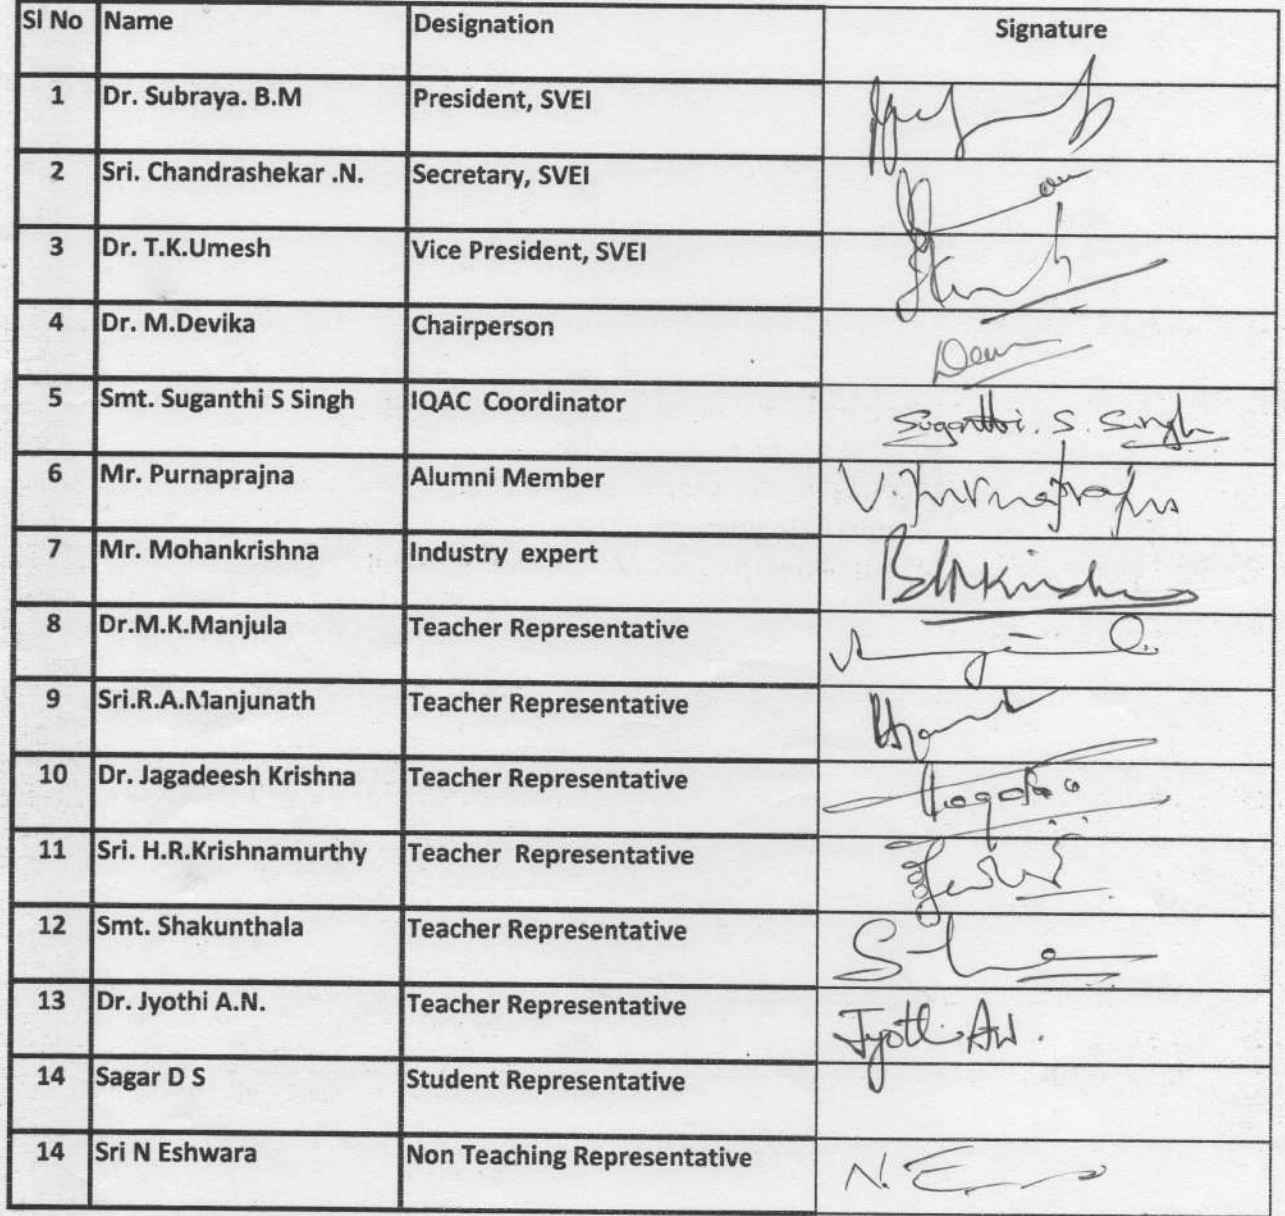 Sl No Name Designation Signature
1 Dr. Subraya. B.M President, SVEI
2 Sri. Chandrashekar .N. Secretary, SVEI
3 Dr. T.K.Umesh Vice President, SVEI
4 Dr. M.Devika Chairperson
5 Smt. Suganthi S Singh IQAC Coordinator Suganthi. S. Singh
6 Mr. Purnaprajna Alumni Member V. Purnaprajna
7 Mr. Mohankrishna Industry expert
8 Dr.M.K.Manjula Teacher Representative
9 Sri.R.A.Manjunath Teacher Representative
10 Dr. Jagadeesh Krishna Teacher Representative
11 Sri. H.R.Krishnamurthy Teacher Representative
12 Smt. Shakunthala Teacher Representative
13 Dr. Jyothi A.N. Teacher Representative Jyothi AN.
14 Sagar D S Student Representative
14 Sri N Eshwara Non Teaching Representative